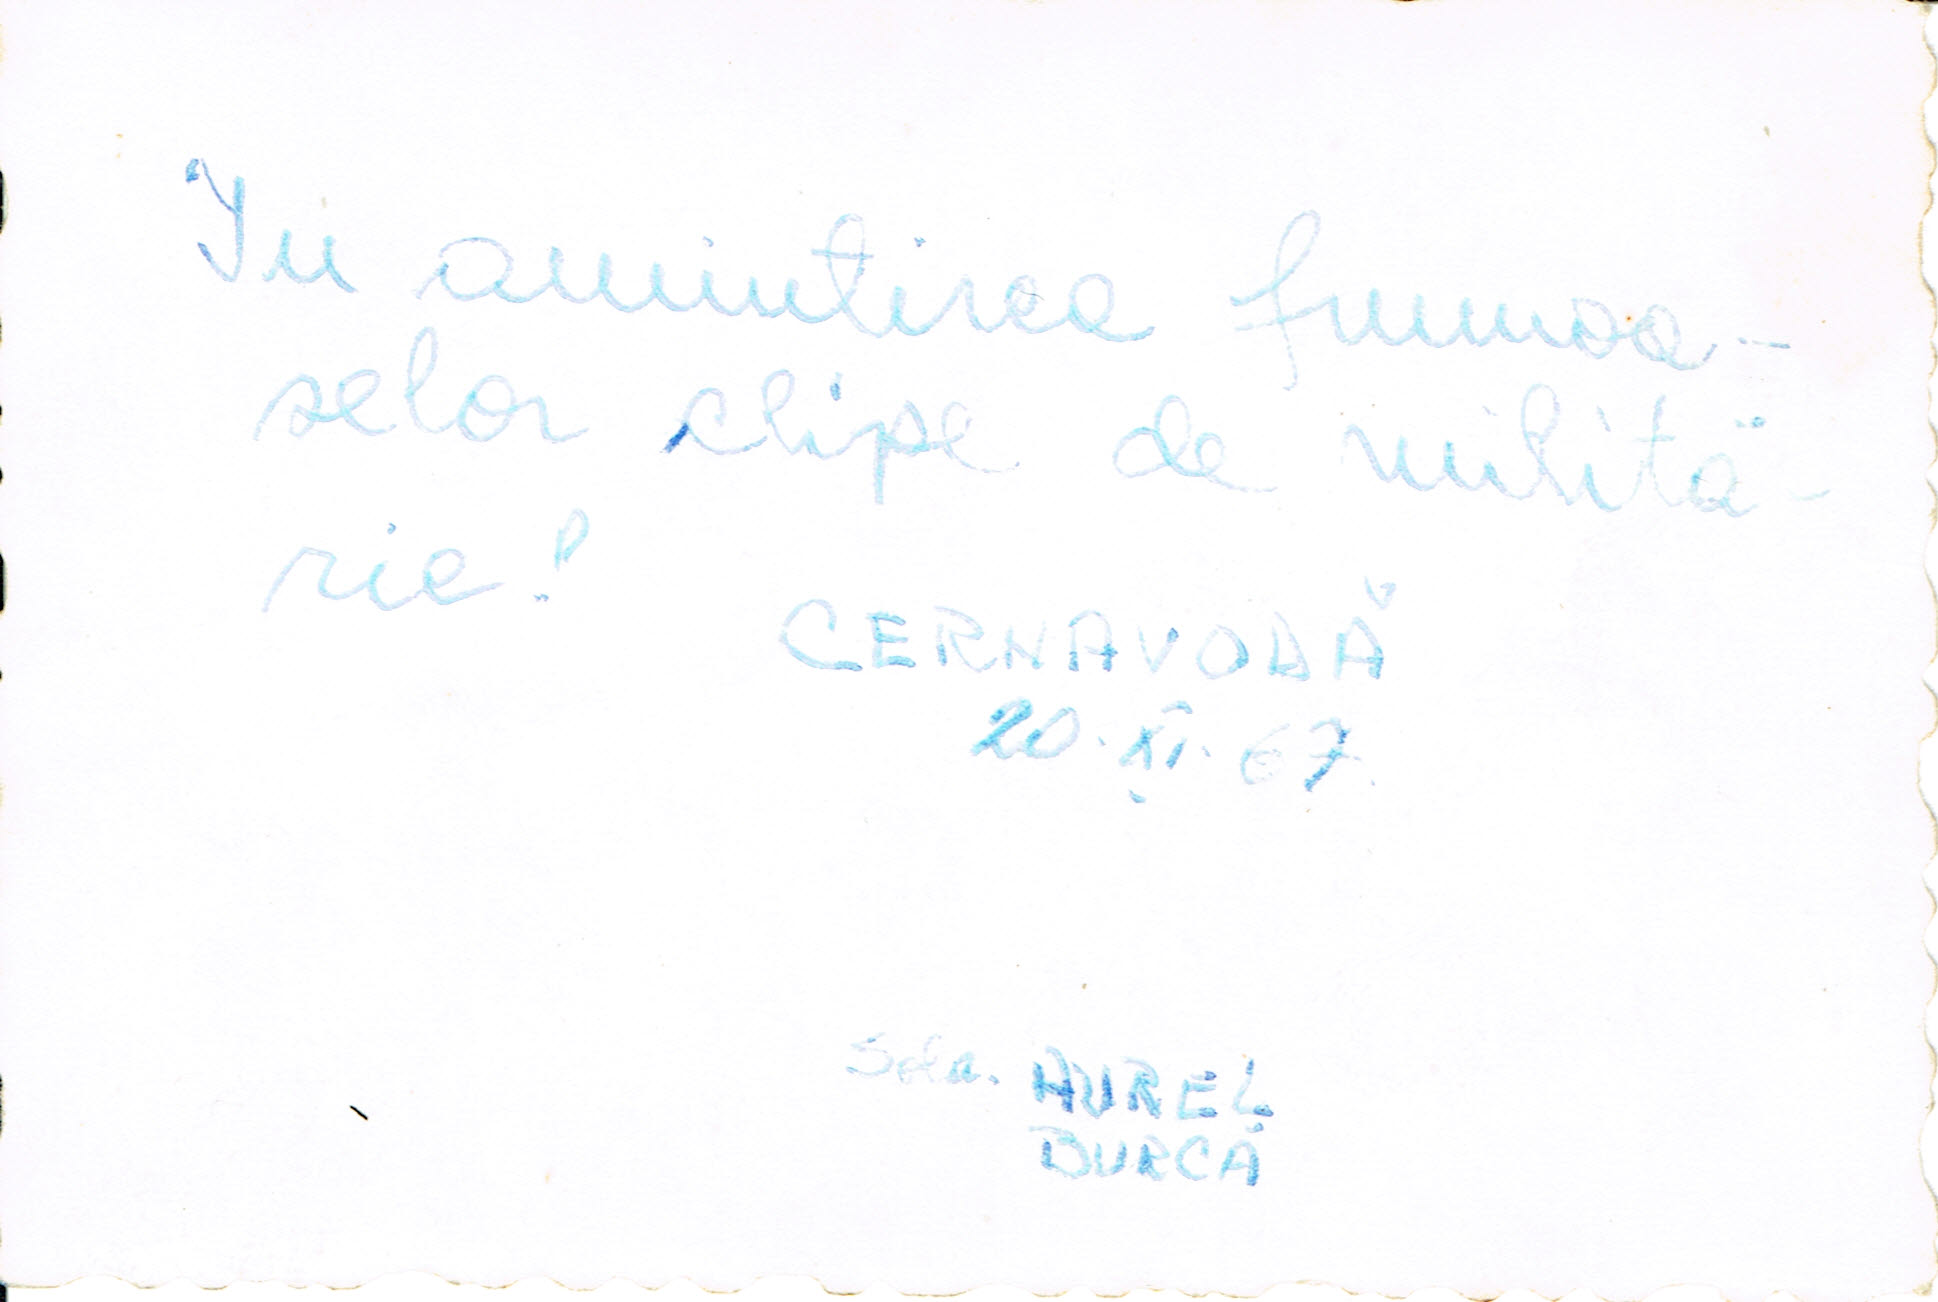 In amintirea frumoa-
selor clipe de milită-
rie!
CERNAVODĂ
20.XI.67.
AUREL
BURCĂ